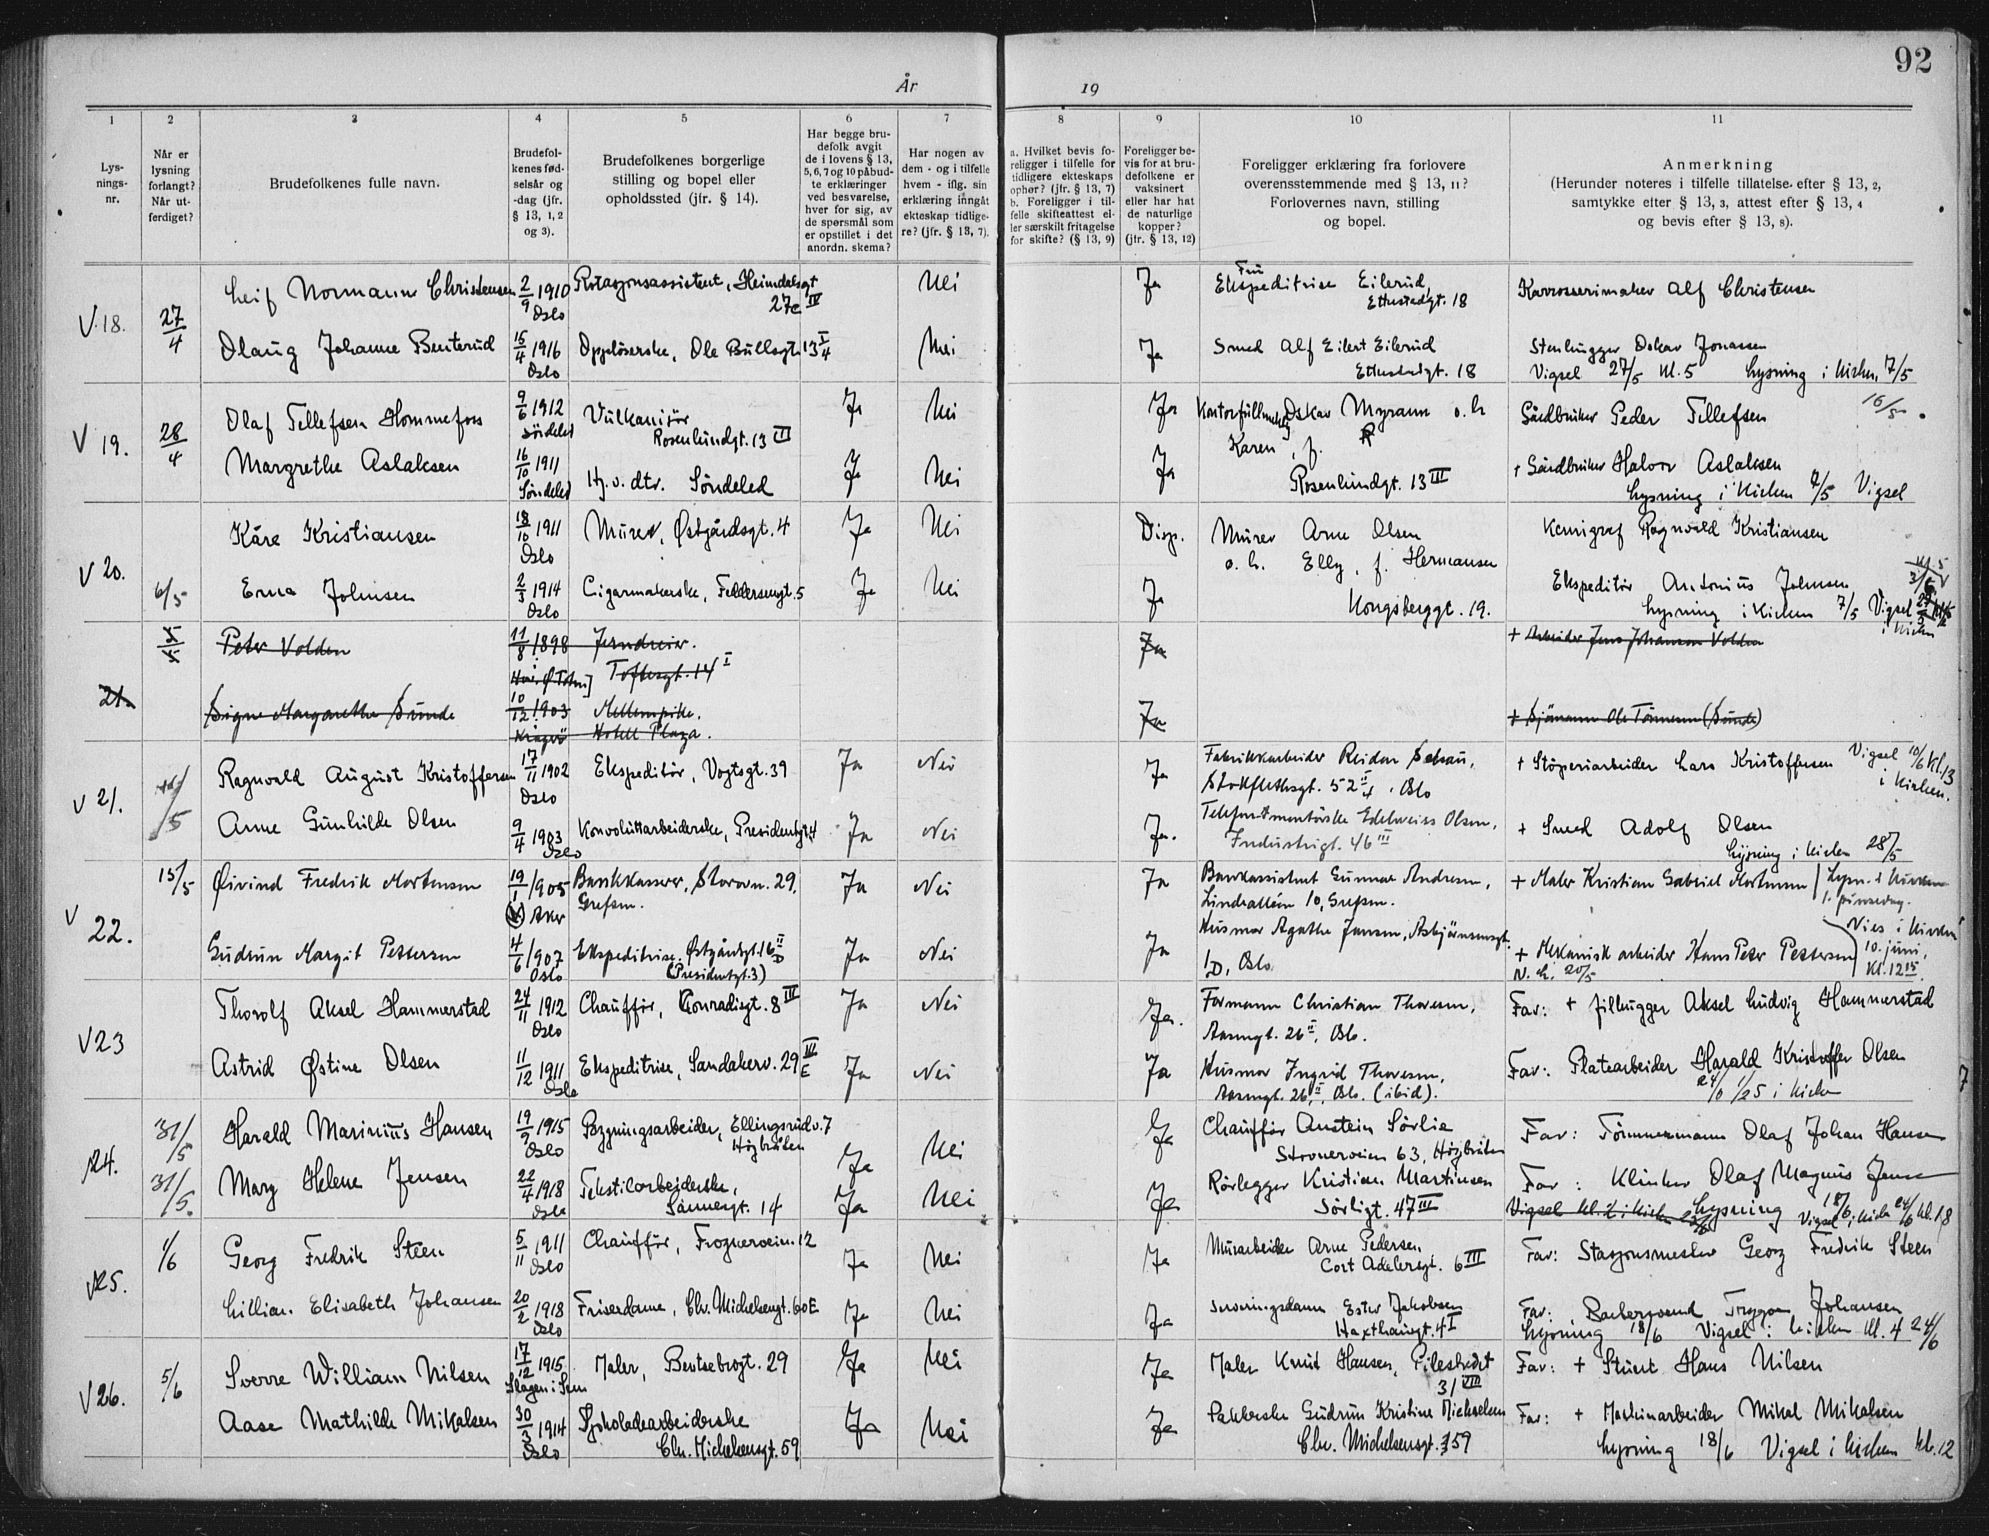 92
År 19
1 2 3 4 5 6 7 8 9 10 11
Lys-
nings-
nr.
Når er
lysning
forlangt?
Når ut-
ferdiget?
Brudefolkenes fulle navn.
Brudefol-
kenes fød-
selsår og
-dag (jfr.
§ 13, 1, 2
og 3).
Brudefolkenes borgerlige
stilling og bopel eller
opholdssted (jfr. § 14).
Har begge bru-
defolk avgit
de i lovens § 13,
5, 6, 7 og 10 påbud-
te erklæringer
ved besvarelse,
hver for sig, av
de spørsmål som
er opstillet i det
anordn. skema?
Har nogen av
dem - og i tilfelle
hvem - iflg. sin
erklæring inngåt
ekteskap tidlige-
re? (jfr. § 13, 7).
a. Hvilket bevis fo-
religger i tilfelle for
tidligere ekteskaps
ophør? (jfr. § 13, 7)
b. Foreligger i til-
felle skifteattest el-
ler særskilt fritagelse
for skifte? (§ 13, 9)
Foreligger be-
vis for at bru-
defolkene er
vaksinert
eller har hat
de naturlige
kopper?
(jfr. § 13, 12)
Foreligger erklæring fra forlovere
overensstemmende med § 13, 11?
Forlovernes navn, stilling
og bopel.
Anmerkning
(Herunder noteres i tilfelle tillatelse efter § 13, 2,
samtykke efter § 13, 3, attest efter § 13, 4
og bevis efter § 13, 8).
V.18. 27/4 Leif Normann Christensen 2/9 1910 Oslo Rotasjonsassistent, Heimdalsgt 27c IV Nei Ja Fru Ekspeditrise Eilerud, Ettustadgt. 18 Karrosserimaker Alf Christensen
Olaug Johanne Benterud 15/4 1916 Oslo Opplöserske, Ole Bullsgt. 13 I/4 Nei Ja Smed Alf Eilert Eilerud Stenhugger Oskar Jonassen
Vigsel 27/5 kl. 5 Lysning i kirken 7/5
V 19. 28/4 Olaf Tellefsen Hommefoss 9/6 1912 Söndeled Vulkanisör Rosenlundgt. 13 III Ja Nei Ja Oskar Myrann o. h. Gårdbruker Peder Tellefsen 16/5
Margrethe Aslaksen 16/10 1911 Söndeled Hj. v. dtr. Söndeled Ja Nei Ja Karen, f. Rosenlundgt. 13 III + Gårdbruker Halvor Aslaksen
Lysning i kirken 7/5 Vigsel
V 20. Kåre Kristiansen 18/10 1911 Oslo Murer, Østgårdsgt. 4 Ja Nei Disp. Murer Arne Olsen Kemigraf Ragnvald Kristiansen
6/5 Erna Johnsen 2/3 1914 Oslo Cigarmakerske, Feddersensgt. 5 Ja Nei Ja o. h. Elly, f. Hermansen Kongsberggt. 19. Ekspeditör Antonius Johnsen
Lysning i kirken 7/5 Vigsel i kirken
21. Peter Volden 11/8 1898 Jerndreier. Toftesgt. 14 I Ja + Arbeider Jens Johansen Volden
Signe Margarethe Sunde 10/12 1903 Kragerö Mellempike. Hotell Plaza. Ja + Sjömann Ole Tönnesen (Sunde)
V 21. Ragnvald August Kristoffersen 17/11 1902 Oslo Ekspeditör, Vogtsgt. 39 Ja Nei Ja Fabrikkarbeider Reidar Schau, Stokflethsgt. 52 II/4, Oslo + Stöperiarbeider Lars Kristoffersen Vigsel 10/6 kl. 13 i kirken.
Anne Gunhilde Olsen 9/4 1903 Oslo Konvoluttarbeiderske, Presidentgt. 4 Ja Nei Ja. Telefonmontörske Edelweiss Olsen, Industrigt. 46 III + Smed Adolf Olsen
Lysning i kirken 28/5
V 22. 15/5 Øivind Fredrik Mortensen 19/1 1905 Aker Bankkasserer, Storovn. 29, Grefsen. Ja Nei Ja Bankassistent Gunnar Andresen, Lindealléen 10, Grefsen. + Maler Kristian Gabriel Mortensen Lysn. i kirken 1. pinsedag.
Gudrun Margit Pettersen 4/6 1907 Oslo Ekspeditrise. Østgårdsgt. 16 II D (Presidentgt. 3) Ja Nei Ja Husmor Agathe Jansen, Asbjörnsensgt. 1 D, Oslo + Mekanisk arbeider Hans Peter Pettersen Vies i kirken 10. juni, kl. 12 15.
V 23 Thorolf Aksel Hammerstad 24/11 1912 Oslo Chauffør, Konradisgt. 8 III Ja Nei Ja. Formann Christian Thoresen, Aasengt. 26 II, Oslo. Far: + Filhugger Aksel Ludvig Hammerstad
Astrid Østine Olsen 11/12 1911 Oslo Ekspeditrise, Sandakerv. 29 III E Ja Nei Ja Husmor Ingrid Thoresen, Aasengt. 26 II, Oslo. (ibid). Far: Platearbeider Harald Kristoffer Olsen
24. 31/5 Harald Marinius Hansen 19/9 1915 Oslo Bygningsarbeider, Ellingsrudv. 7 Høybråten Ja Nei Ja Chauffør Anstein Sörlie Stovnerveien 63, Høybråten Far: Tömmermann Olaf Johan Hansen
31/5. Mary Helene Jensen 22/4 1918 Oslo Tekstilarbeiderske, Sannergt. 14 Ja Nei Ja Rörlegger Kristian Martinsen Sörligt. 47 III Far: Klinker Olaf Magnus Jensen
Lysning 18/6 Vigsel i kirken 24/6
V25. 1/6 Georg Fredrik Steen 5/11 1911 Oslo Chauffør, Frognerveien 12 Ja Nei Ja Murarbeider Arne Pedersen Cort Adelersgt. 6 III Far: Stasjonsmester Georg Fredrik Steen
Lillian Elisabeth Johansen 20/2 1918 Oslo Friserdame, Chr. Michelsensgt. 60E Ja Nei Ja Serveringsdame Ester Jakobsen Haxthausgt. 4 I Far: Barbersvend Trygve Johansen
Lysning 18/6 Vigsel i kirken kl. 4 24/6
V26. 5/6 Sverre William Nilsen 17/12 1915 Slagen i Sem Maler, Bentsebrogt. 29 Ja Nei Ja Maler Knut Hansen, Pilestredet 31 VIII Far: + Stuert Hans Nilsen
Aase Mathilde Mikalsen 30/3 1914 Oslo Sjokoladearbeiderske Chr. Michelsensgt. 59 Ja Nei Ja Pakkerske Gudrun Kristine Michaelsen Chr. Michelsensgt. 59 Far: + Maskinarbeider Mikal Mikalsen
Lysning 18/6 Vigsel i kirken kl. 12